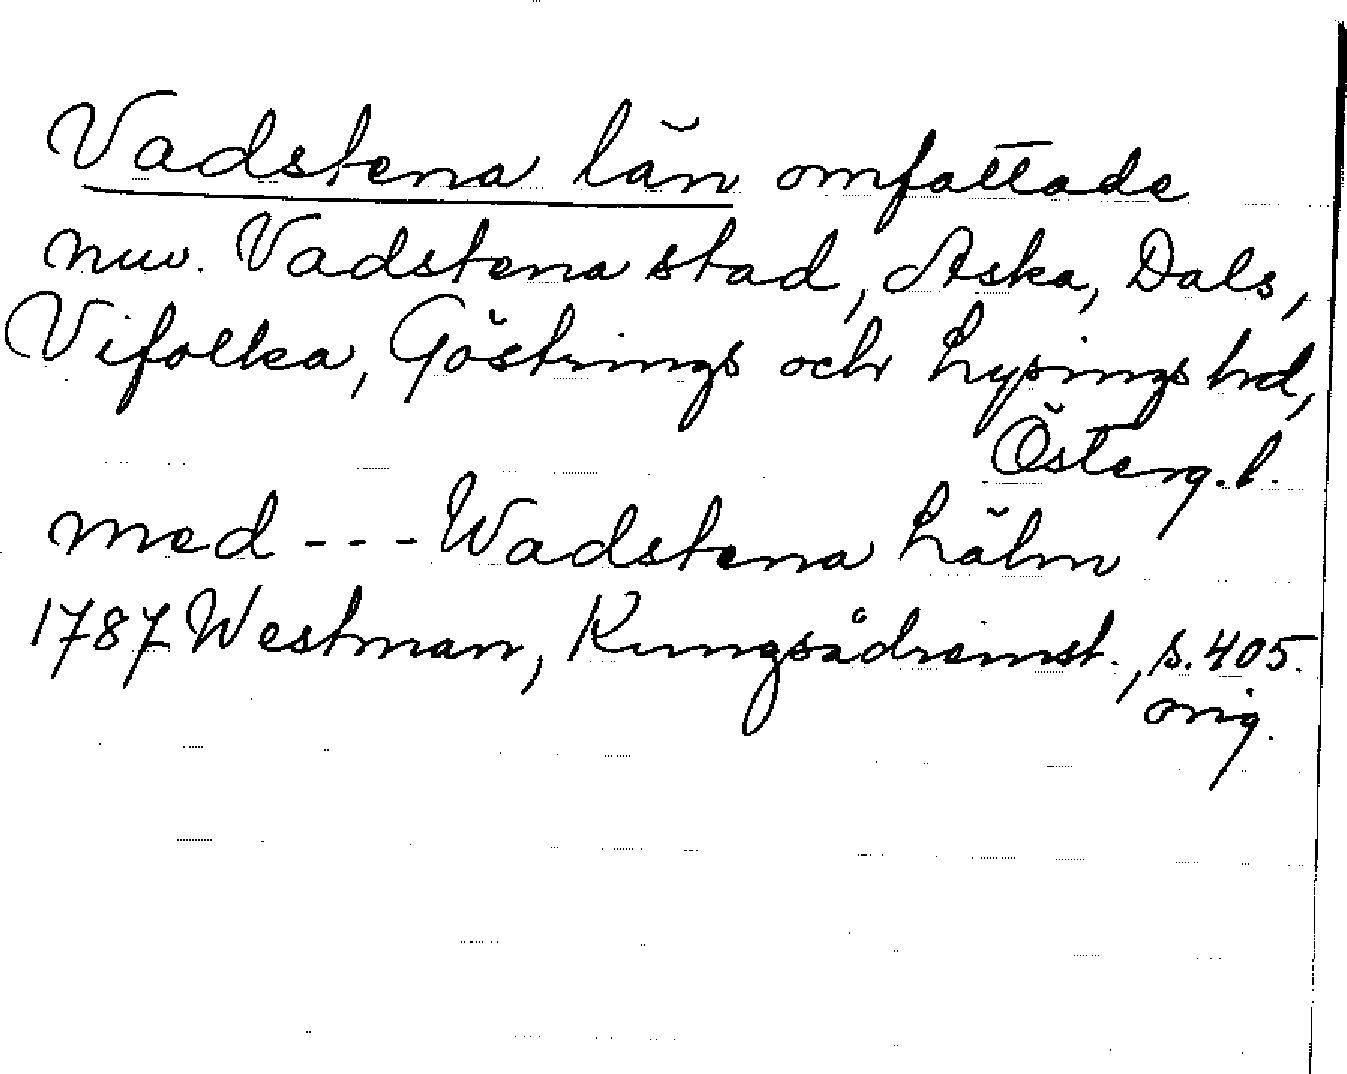 Vadstena län omfattade
nuv. Vadstena stad, Aska, Dals,
Vifolka, Göstrings och Lysings hrd,
Österg. l.
med --- Wadstena Lähn
1787 Westman, Kungsådremst., s. 405.
orig.